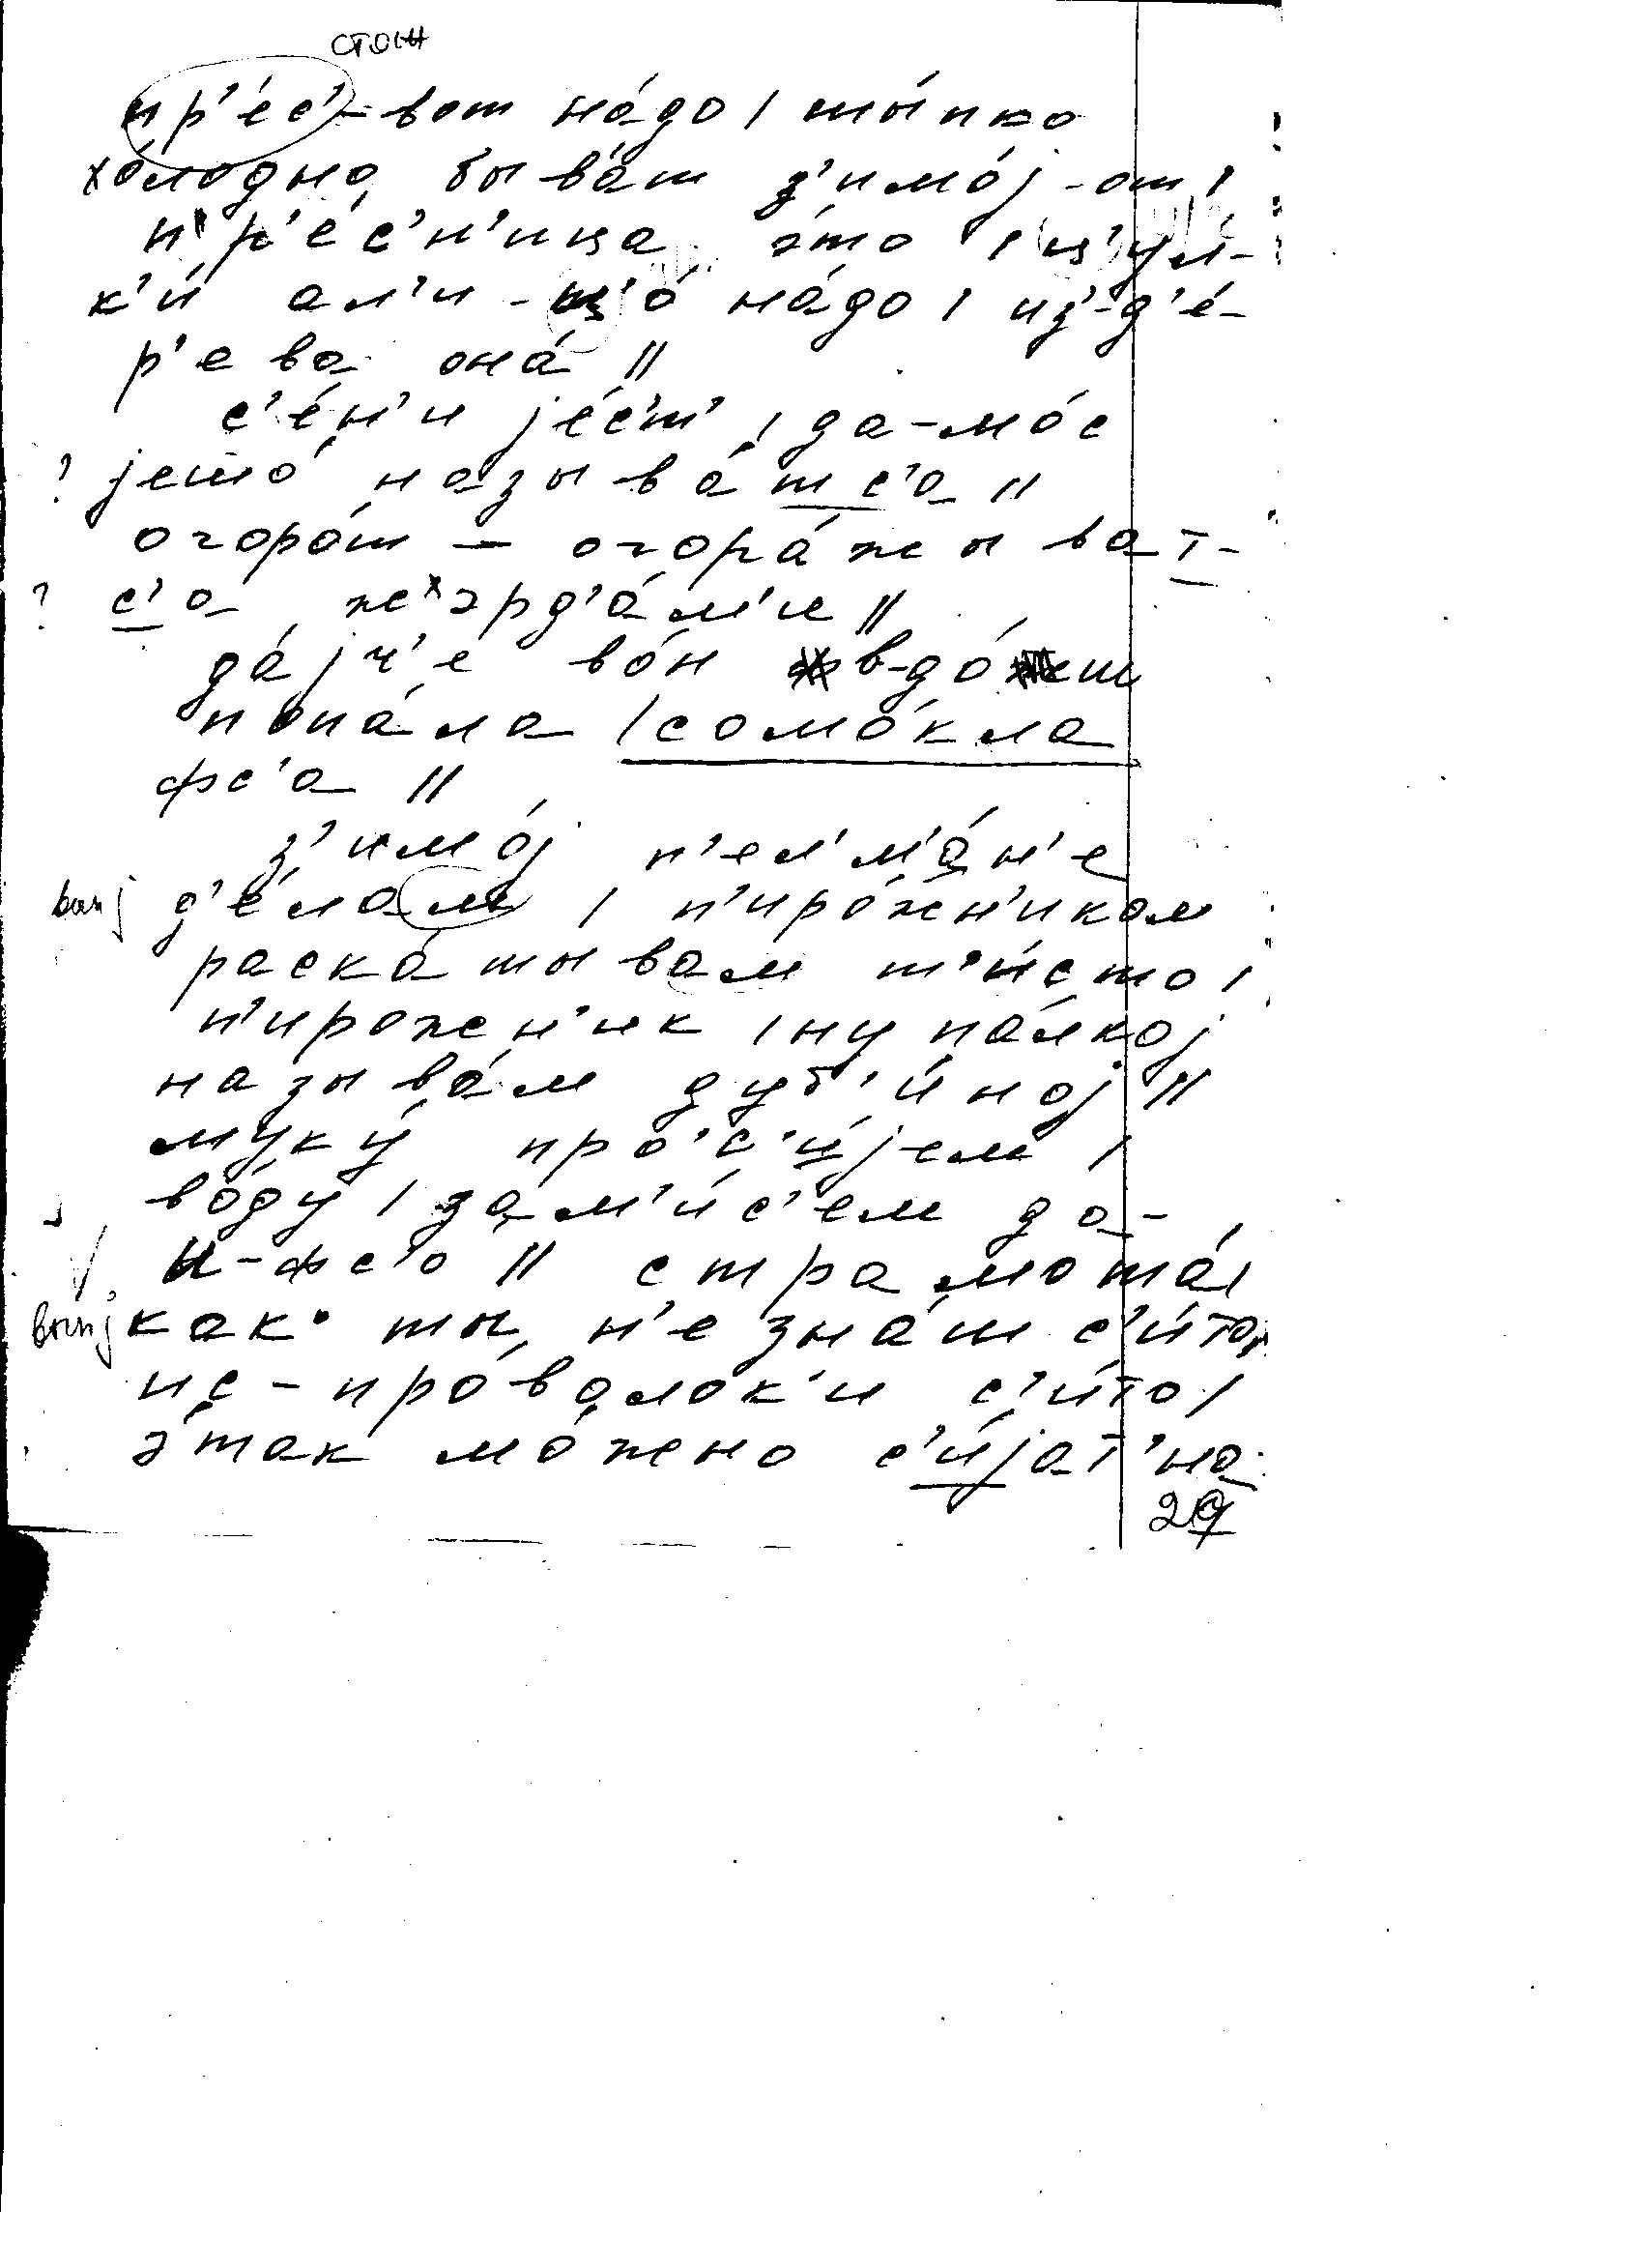 стои
пр'е́с'-вот на́до / ты́пко
хо́лодно быва́т з'имо́j-от /
пр'е́с'н'ица э́то / ц'ул-
к'и́ ал'и-ц'о́ на́до / из'-д'е́-
р'ева она́ //
с'е́н'и jе́с'т' / да-мо́с
? jето́ называ́тс'а //
огоро́т – огора́жыват-
? с'а жэрд'а́м'и //
да́jч'е во́н в-до́ш
попа́ла / сомо́кла
фс'а //
з'имо́j п'ел'м'а́н'е
д'е́лам / п'иро́жн'иком
раска́тывам т'и́сто /
п'ирожн'ик / ну па́лкоj
называ́м дуб'и́ноj //
муку́ прос'и́jем /
во́ду / зам'и́с'ем да-
и-фс'о // страмота́ /
как ты н'е зна́ш с'и́то,
ис-про́волок'и с'и́то /
э́так мо́жно с'и́jат' на
29